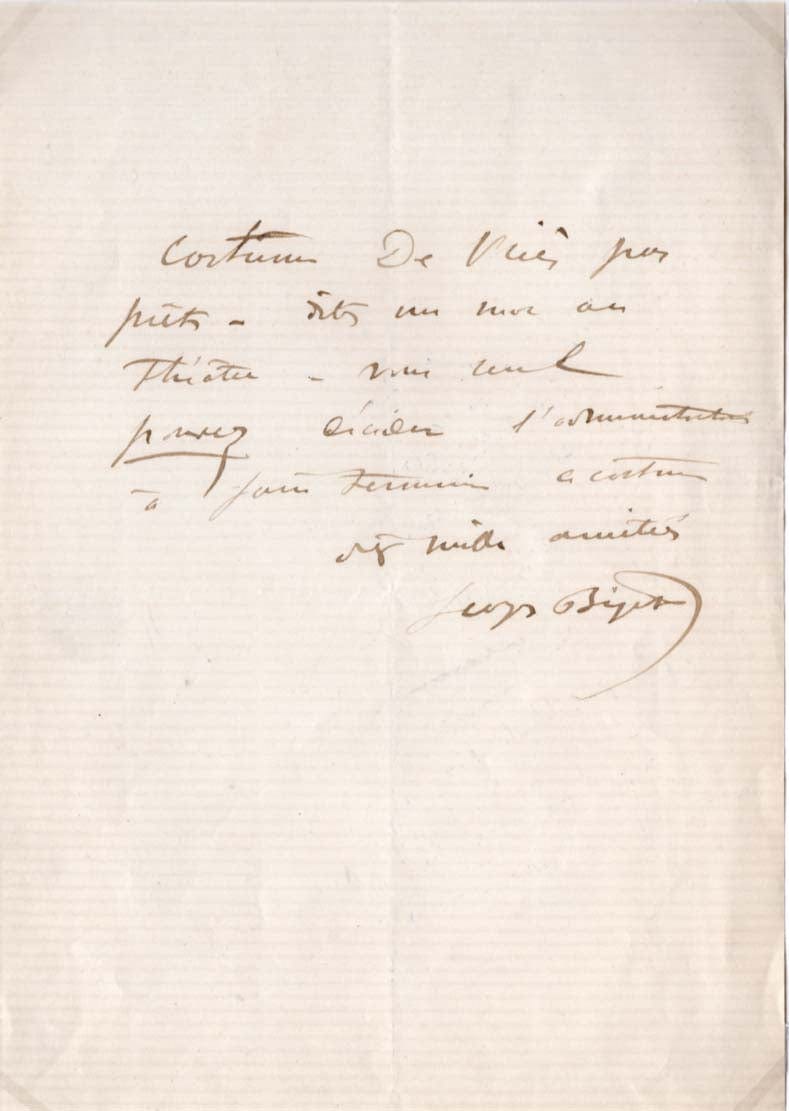 Costumes De Vriès pas
prêts – dites un mot au
Théâtre – vous seul
pouvez décider l'administration
à faire terminer ces costumes
mille amitiés
Georges Bizet